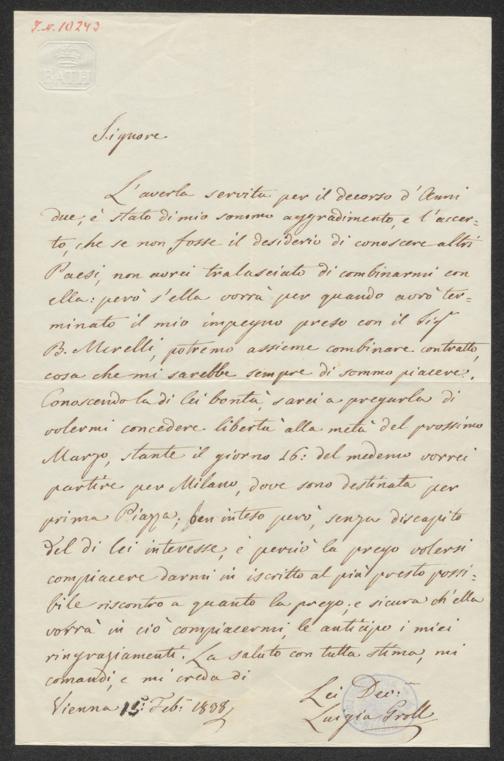 I.N. 10243
BATH
Signore
L'averla servita per il decorso d'Anni
due, è stato di mio sommo aggradimento, e l'accer-
to, che se non fosse il desiderio di conoscere altri
Paesi, non avrei tralasciato di combinarmi con
ella: però s'ella vorrà per quando avrò ter-
minato il mio impegno preso con il Sigr
B. Merelli, potremo assieme combinare contratto,
cosa che mi sarebbe sempre di sommo piacere.
Conoscendo la di lei bontà, sarei a pregarla di
volermi concedere libertà alla metà del prossimo
Marzo, stante il giorno 26: del medemo vorrei
partire per Milano, dove sono destinata per
prima Piazza; ben inteso però, senza discapito
del di lei interesse, e perciò la prego volersi
compiacere darmi in iscritto al più presto possi-
bile riscontro a quanto la prego; e sicura ch'ella
vorrà in ciò compiacermi, le anticipo i miei
ringraziamenti. La saluto con tutta stima, mi
comandi, e mi creda di
Vienna 15: Feb: 1838
Lei Dev:
Luigia Groll